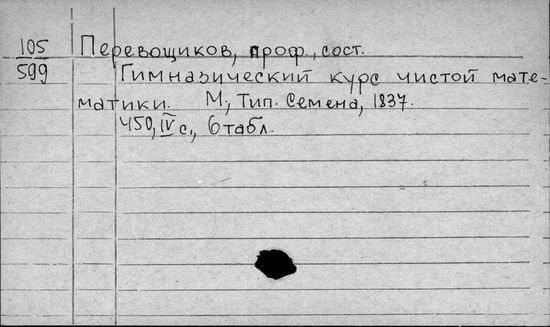 105 Перевощиков, проф., сост.
599 Гимназический курс чистой мате-
матики. М., Тип. Семена, 1837.
450, IV с., 6 табл.